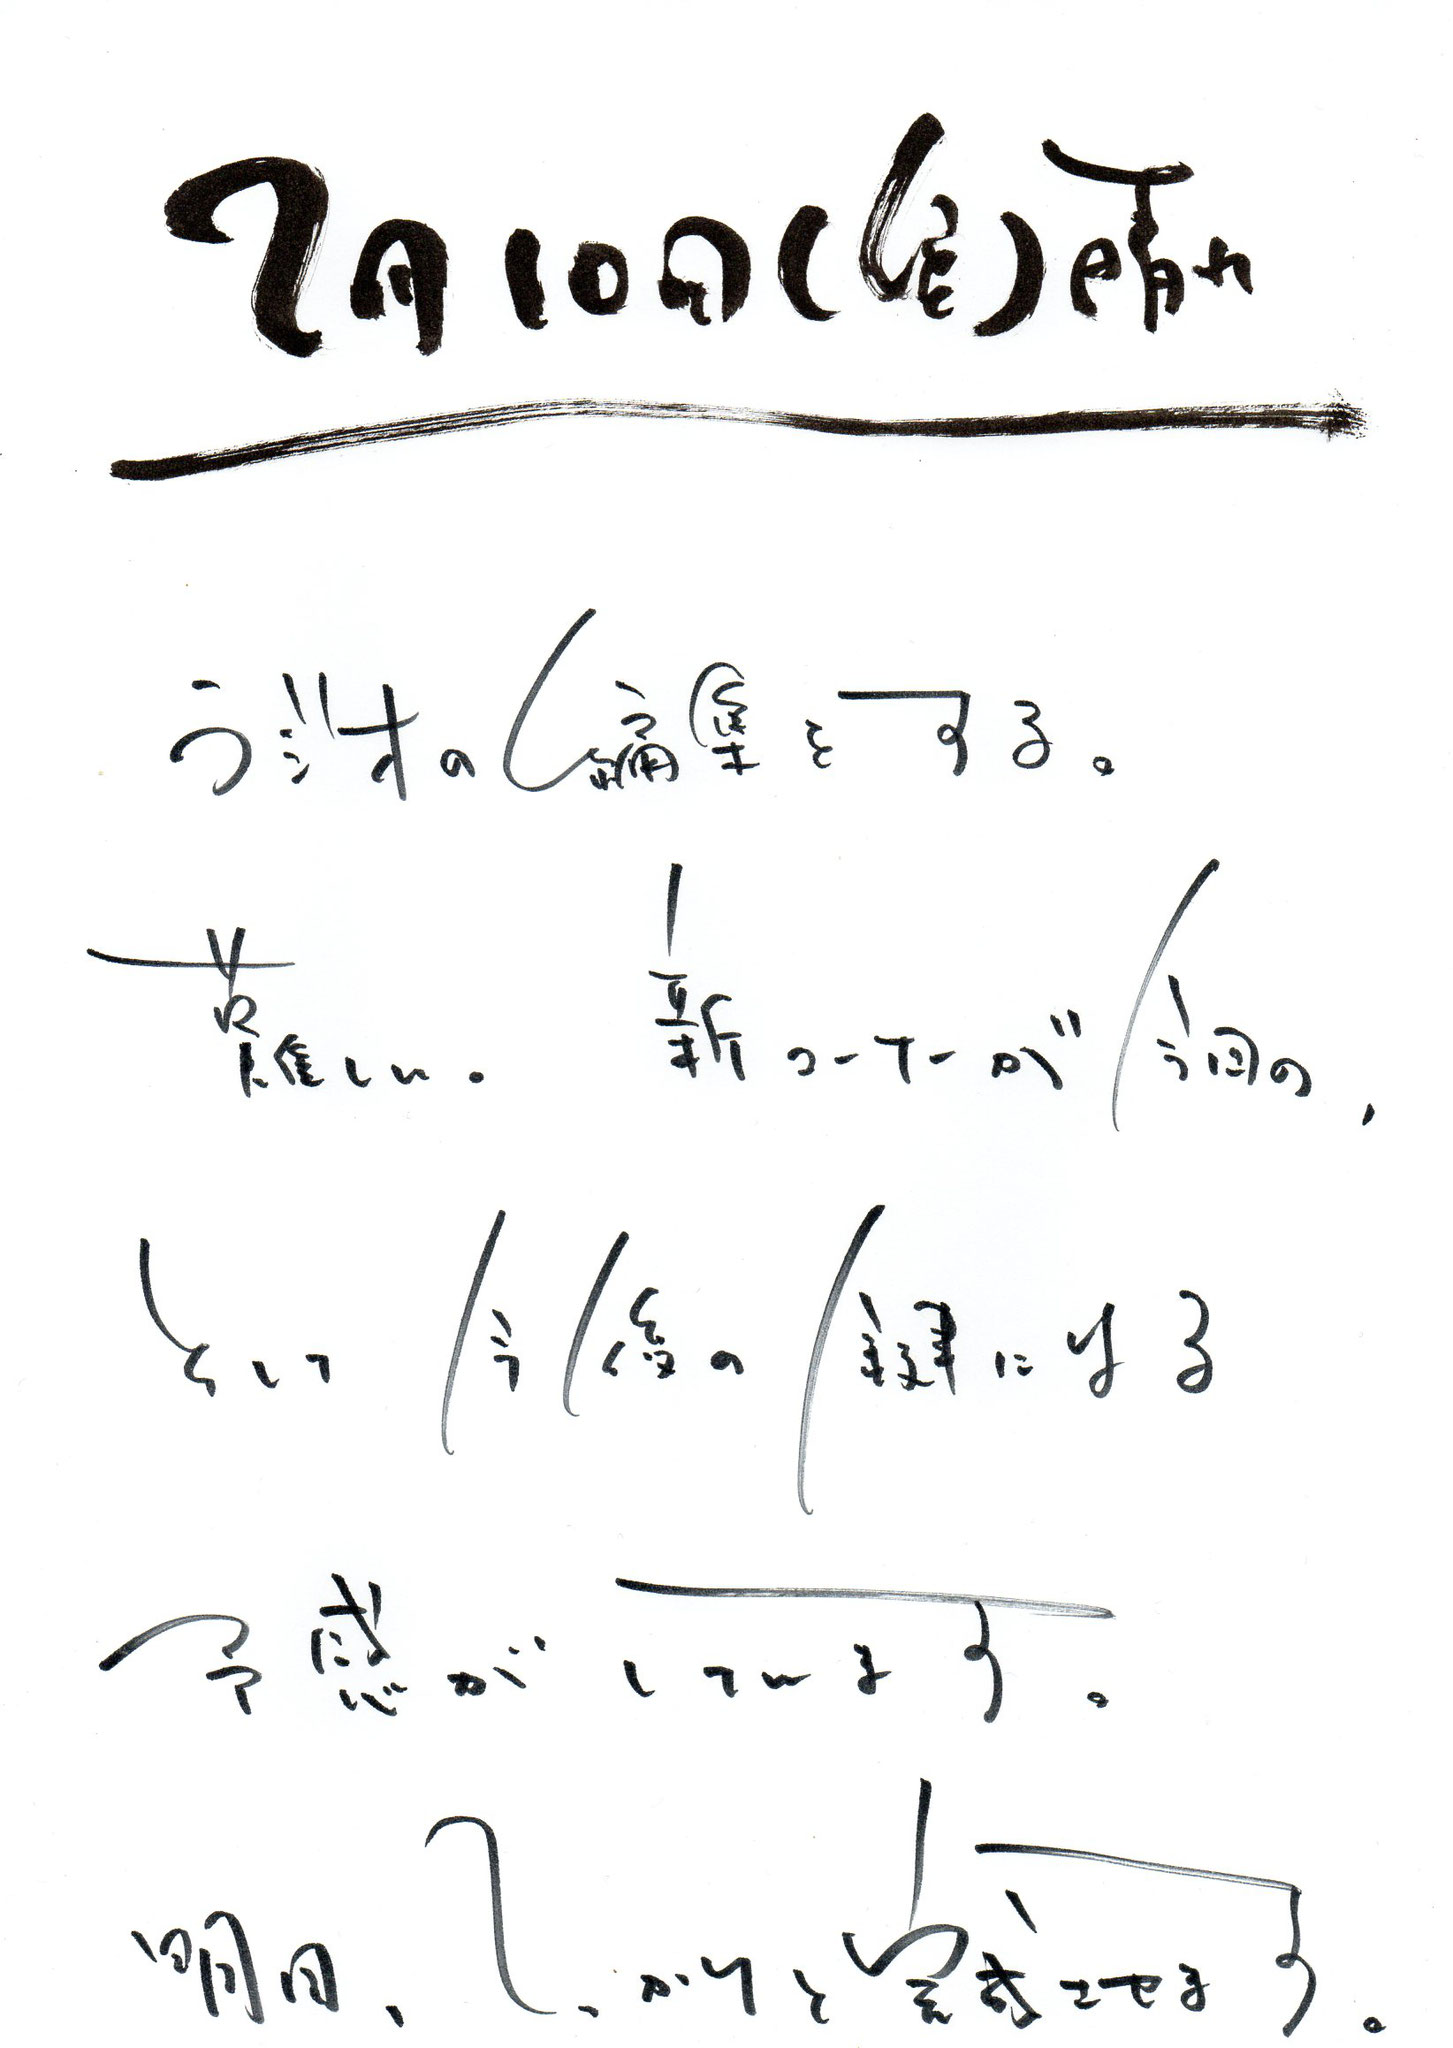 7月10日(金)晴れ
ラジオの編集をする。
難しい。 新コーナーが今回の、
そして今後の鍵になる
予感がしています。
明日、しっかりと完成させます。